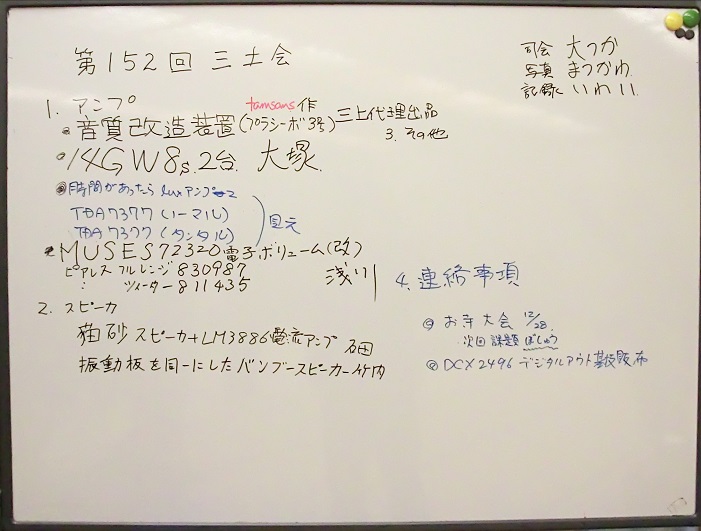 第152回 三土会
司会 大つか
写真 まつかわ
記録 いわ
1. アンプ
tamsans作
音質改造装置(プラシーボ3号)三上代理出品
3. その他
14GW8s.2台 大塚
時間があったら luxアンプ
TDA7377(ノーマル)
TDA7377(タンタル)
MUSES72320電子ボリューム(改)
ピアレス フルレンジ 830987 浅川
: ツィーター 811435
4. 連絡事項
2. スピーカ
お寺大会 12/28.
猫砂スピーカ+LM3886電流アンプ 石田
次回課題ぼしゅう
振動板を同一にしたバンブースピーカー 竹内
DCX2496 デジタルアウト基板販布